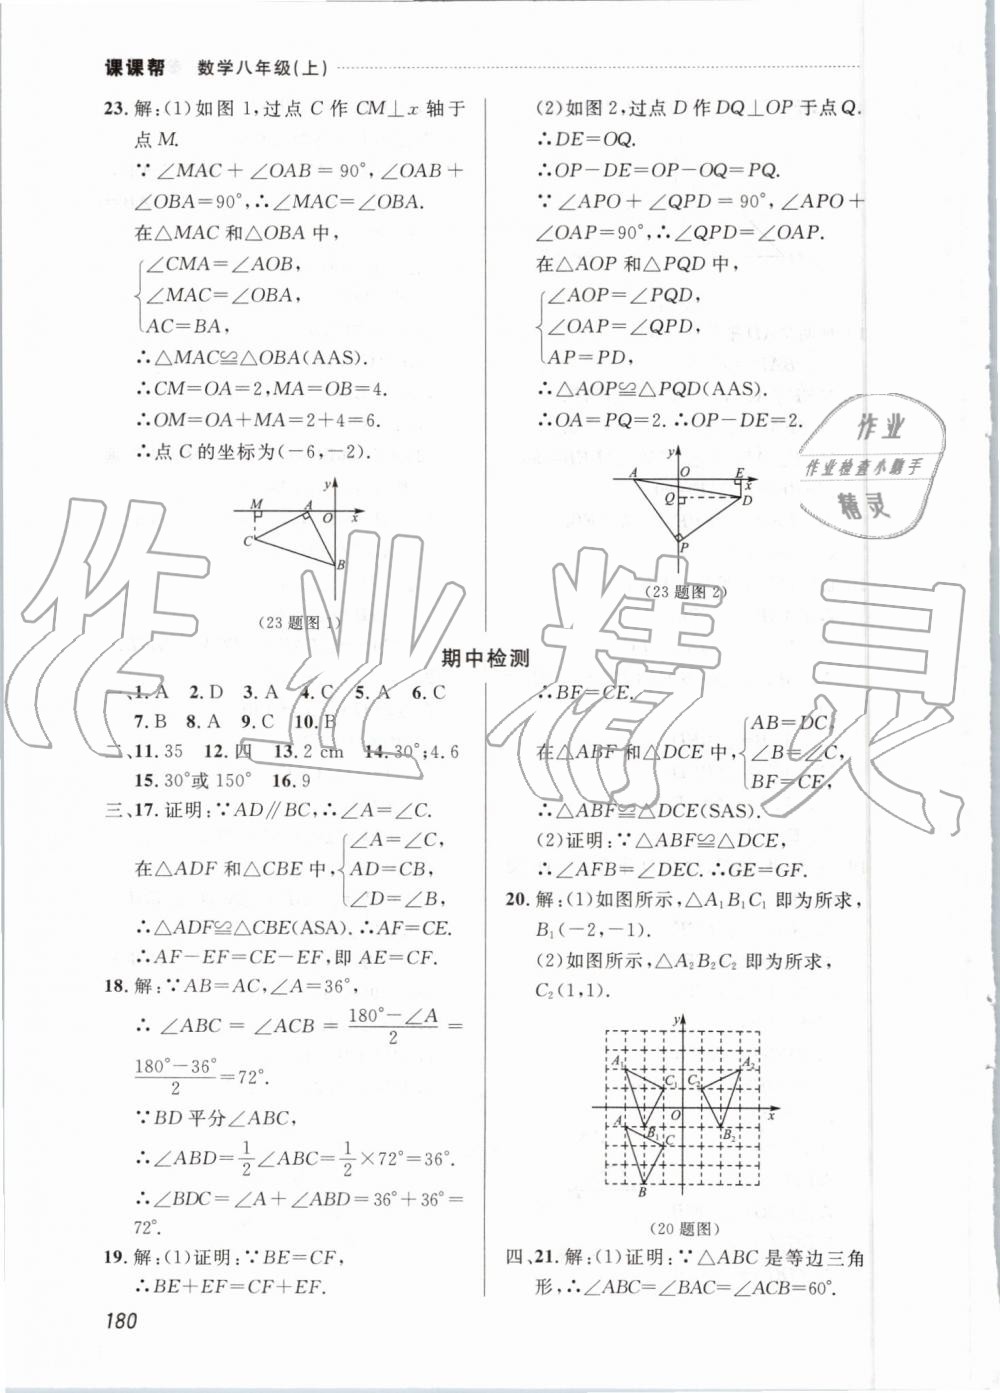 课课帮 数学八年级(上)
23. 解:(1)如图 1,过点 C 作 CM⊥x 轴于
点 M.
∵∠MAC+∠OAB=90°,∠OAB+
∠OBA=90°,∴∠MAC=∠OBA.
在△MAC 和△OBA 中,
∠CMA=∠AOB,
∠MAC=∠OBA,
AC=BA,
∴△MAC≌△OBA(AAS).
∴CM=OA=2,MA=OB=4.
∴OM=OA+MA=2+4=6.
∴点 C 的坐标为(-6,-2).
y
M A O x
C
B
(23 题图 1)
(2)如图 2,过点 D 作 DQ⊥OP 于点 Q.
∴DE=OQ.
∴OP-DE=OP-OQ=PQ.
∵∠APO+∠QPD=90°,∠APO+
∠OAP=90°,∴∠QPD=∠OAP.
在△AOP 和△PQD 中,
∠AOP=∠PQD,
∠OAP=∠QPD,
AP=PD,
∴△AOP≌△PQD(AAS).
∴OA=PQ=2.∴OP-DE=2.
y
A O E x
Q D
P
(23 题图 2)
作业
作业检查小助手
精灵
期中检测
一、1. A 2. D 3. A 4. C 5. A 6. C
7. B 8. A 9. C 10. B
二、11. 35 12. 四 13. 2 cm 14. 30°;4.6
15. 30°或 150° 16. 9
三、17. 证明:∵AD∥BC,∴∠A=∠C.
∠A=∠C,
在△ADF 和△CBE 中, AD=CB,
∠D=∠B,
∴△ADF≌△CBE(ASA).∴AF=CE.
∴AF-EF=CE-EF,即 AE=CF.
18. 解:∵AB=AC,∠A=36°,
∴∠ABC=∠ACB=(180°-∠A)/2=
(180°-36°)/2=72°.
∵BD 平分∠ABC,
∴∠ABD=1/2∠ABC=1/2×72°=36°.
∴∠BDC=∠A+∠ABD=36°+36°=
72°.
19. 解:(1)证明:∵BE=CF,
∴BE+EF=CF+EF.
∴BF=CE.
AB=DC,
在△ABF 和△DCE 中, ∠B=∠C,
BF=CE,
∴△ABF≌△DCE(SAS).
(2)证明:∵△ABF≌△DCE,
∴∠AFB=∠DEC.∴GE=GF.
20. 解:(1)如图所示,△A₁B₁C₁ 即为所求,
B₁(-2,-1).
(2)如图所示,△A₂B₂C₂ 即为所求,
C₂(1,1).
y
A₁ A₂
C₁ C₂
O x
A B₁ B₂
C
B
(20 题图)
四、21. 解:(1)证明:∵△ABC 是等边三角
形,∴∠ABC=∠BAC=∠ACB=60°.
180
作业精灵